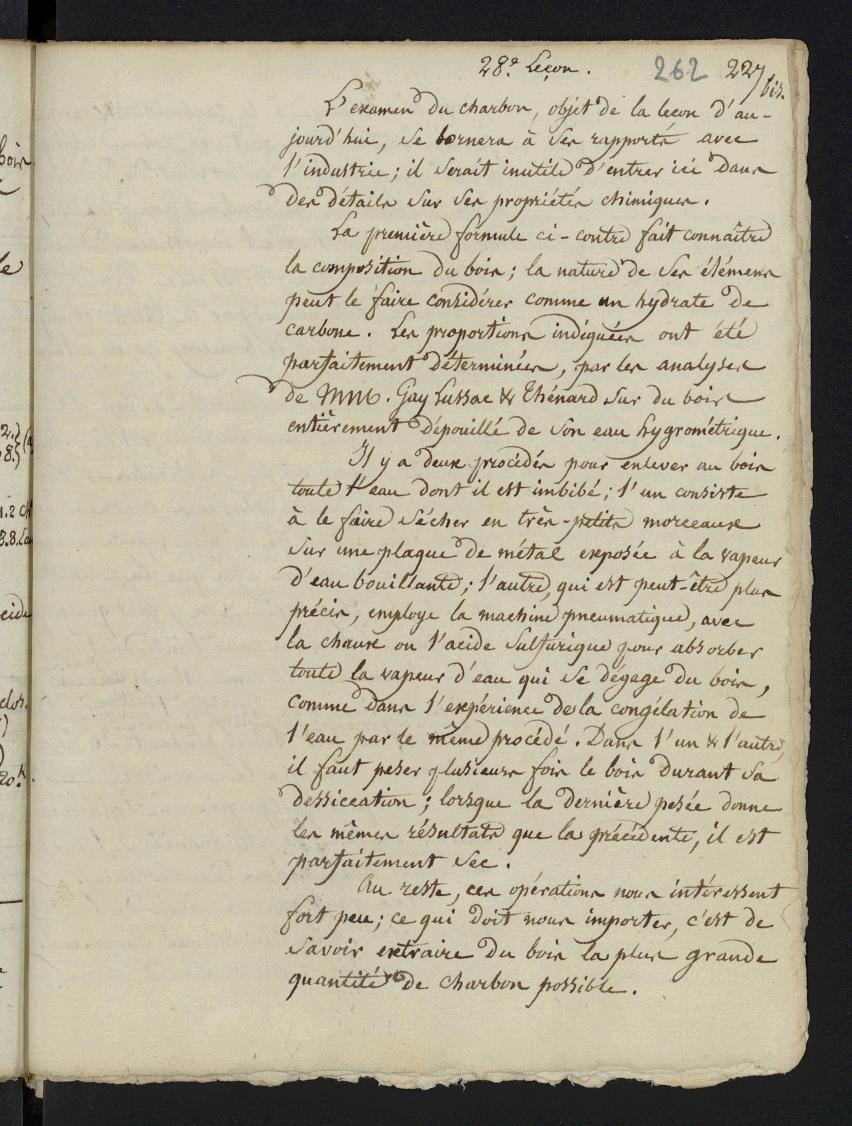 28.e Leçon. 262 227 bis.
L'examen du charbon, objet de la leçon d'au-
jourd'hui, se bornera à ses rapports avec
l'industrie; il serait inutile d'entrer ici dans
des détails sur ses propriétés chimiques.
La première formule ci-contre fait connaître
la composition du bois; la nature de ses élémens
peut le faire considérer comme un hydrate de
carbone. Les proportions indiquées ont été
parfaitement déterminées, par les analyses
de MM. Gay Lussac & Thénard sur du bois
entièrement dépouillé de son eau hygrométrique.
Il y a deux procédés pour enlever au bois
toute l'eau dont il est imbibé; l'un consiste
à le faire sécher en très-petits morceaux
sur une plaque de métal exposée à la vapeur
d'eau bouillante; l'autre, qui est peut-être plus
précis, employe la machine pneumatique, avec
la chaux ou l'acide sulfurique pour absorber
toute la vapeur d'eau qui se dégage du bois,
comme dans l'expérience de la congélation de
l'eau par le même procédé. Dans l'un & l'autre,
il faut peser plusieurs fois le bois durant sa
dessiccation; lorsque la dernière pesée donne
les mêmes résultats que la précédente, il est
parfaitement sec.
Au reste, ces opérations nous intéressent
fort peu; ce qui doit nous importer, c'est de
savoir extraire du bois la plus grande
quantité de charbon possible.